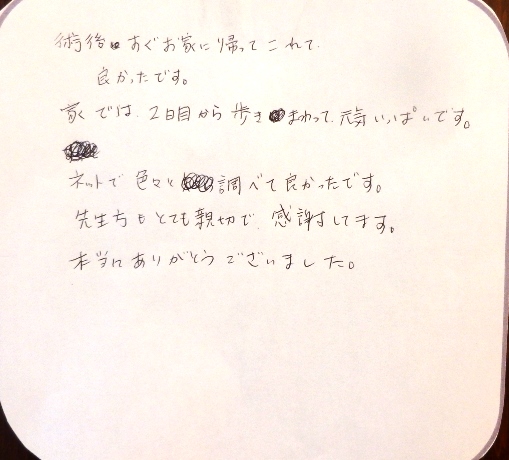 術後すぐお家に帰ってこれて
良かったです。
家では、2日目から歩きまわって、元気いっぱいです。
ネットで色々と調べて良かったです。
先生方もとても親切で、感謝してます。
本当にありがとうございました。